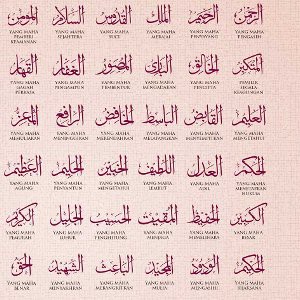 الرحمن الرحيم الملك القدوس السلام المؤمن
YANG MAHA PENGASIH
YANG MAHA PENYAYANG
YANG MAHA MERAJAI
YANG MAHA SUCI
YANG MAHA SEJAHTERA
YANG MAHA PEMBERI KEAMANAN
المتكبر الخالق البارئ المصور الغفار القهار
PEMILIK SEGALA KEAGUNGAN
YANG MAHA PENCIPTA
YANG MAHA MENGADAKAN
YANG MAHA
YANG MAHA PENGAMPUN
YANG MAHA GAGAH PERKASA
العليم القابض الباسط الخافض الرافع المعز
YANG MAHA MENGETAHUI
YANG MAHA
YANG MAHA
YANG MAHA
YANG MAHA MENINGGIKAN
YANG MAHA MEMULIAKAN
الحكم العدل اللطيف الخبير الحليم العظيم
YANG MAHA HUKUM
YANG MAHA ADIL
YANG MAHA LEMBUT
YANG MAHA MENGETAHUI
YANG MAHA PENYANTUN
YANG MAHA AGUNG
الكبير الحفيظ المقيت الحسيب الجليل الكريم
YANG MAHA BESAR
YANG MAHA
YANG MAHA
YANG MAHA
YANG MAHA LUHUR
YANG MAHA PEMURAH
الحكيم الودود المجيد الباعث الشهيد الحق
YANG MAHA
YANG MAHA
YANG MAHA MULIA
YANG MAHA
YANG MAHA MENYAKSIKAN
YANG MAHA BENAR